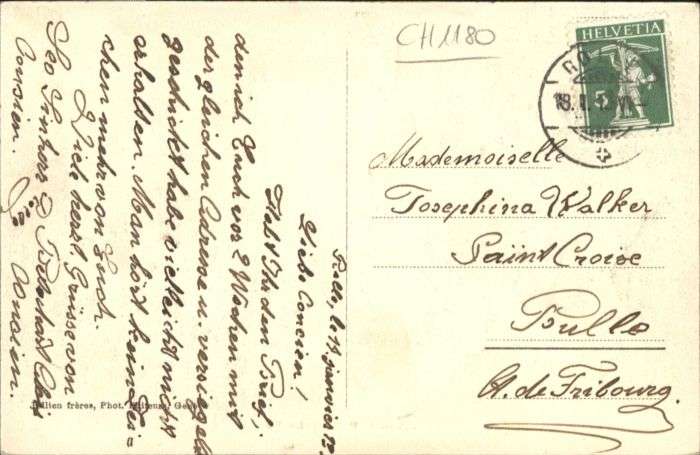 CH1180
HELVETIA
5
Mademoiselle
Josephina Walker
Saint Croise
Bulle
Ct. de Fribourg.
Rolle, le 18. janvier 12.
Liebe Cousien!
Habt Ihr den Brief,
den ich Euch vor 2 Wochen mit
der gleichen Adresse u. versiegelt
geschickt habe vielleicht nicht
erhalten. Man hört kein Zei=
chen mehr von Euch.
Viele herzl Grüsse von
Cousien.
Cousien.
Jullien frères, Phot. Editeurs, Genève